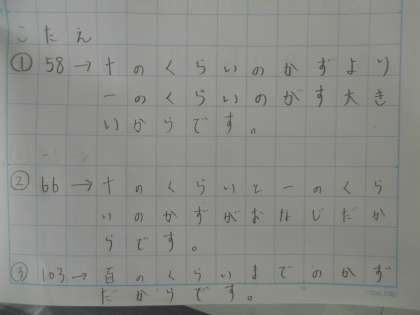 こたえ
① 58→十のくらいのかずより
一のくらいのかず大き
いからです。
② 66→十のくらいと一のくら
いのかずがおなじだか
らです。
③ 103→百のくらいまでのかず
だからです。